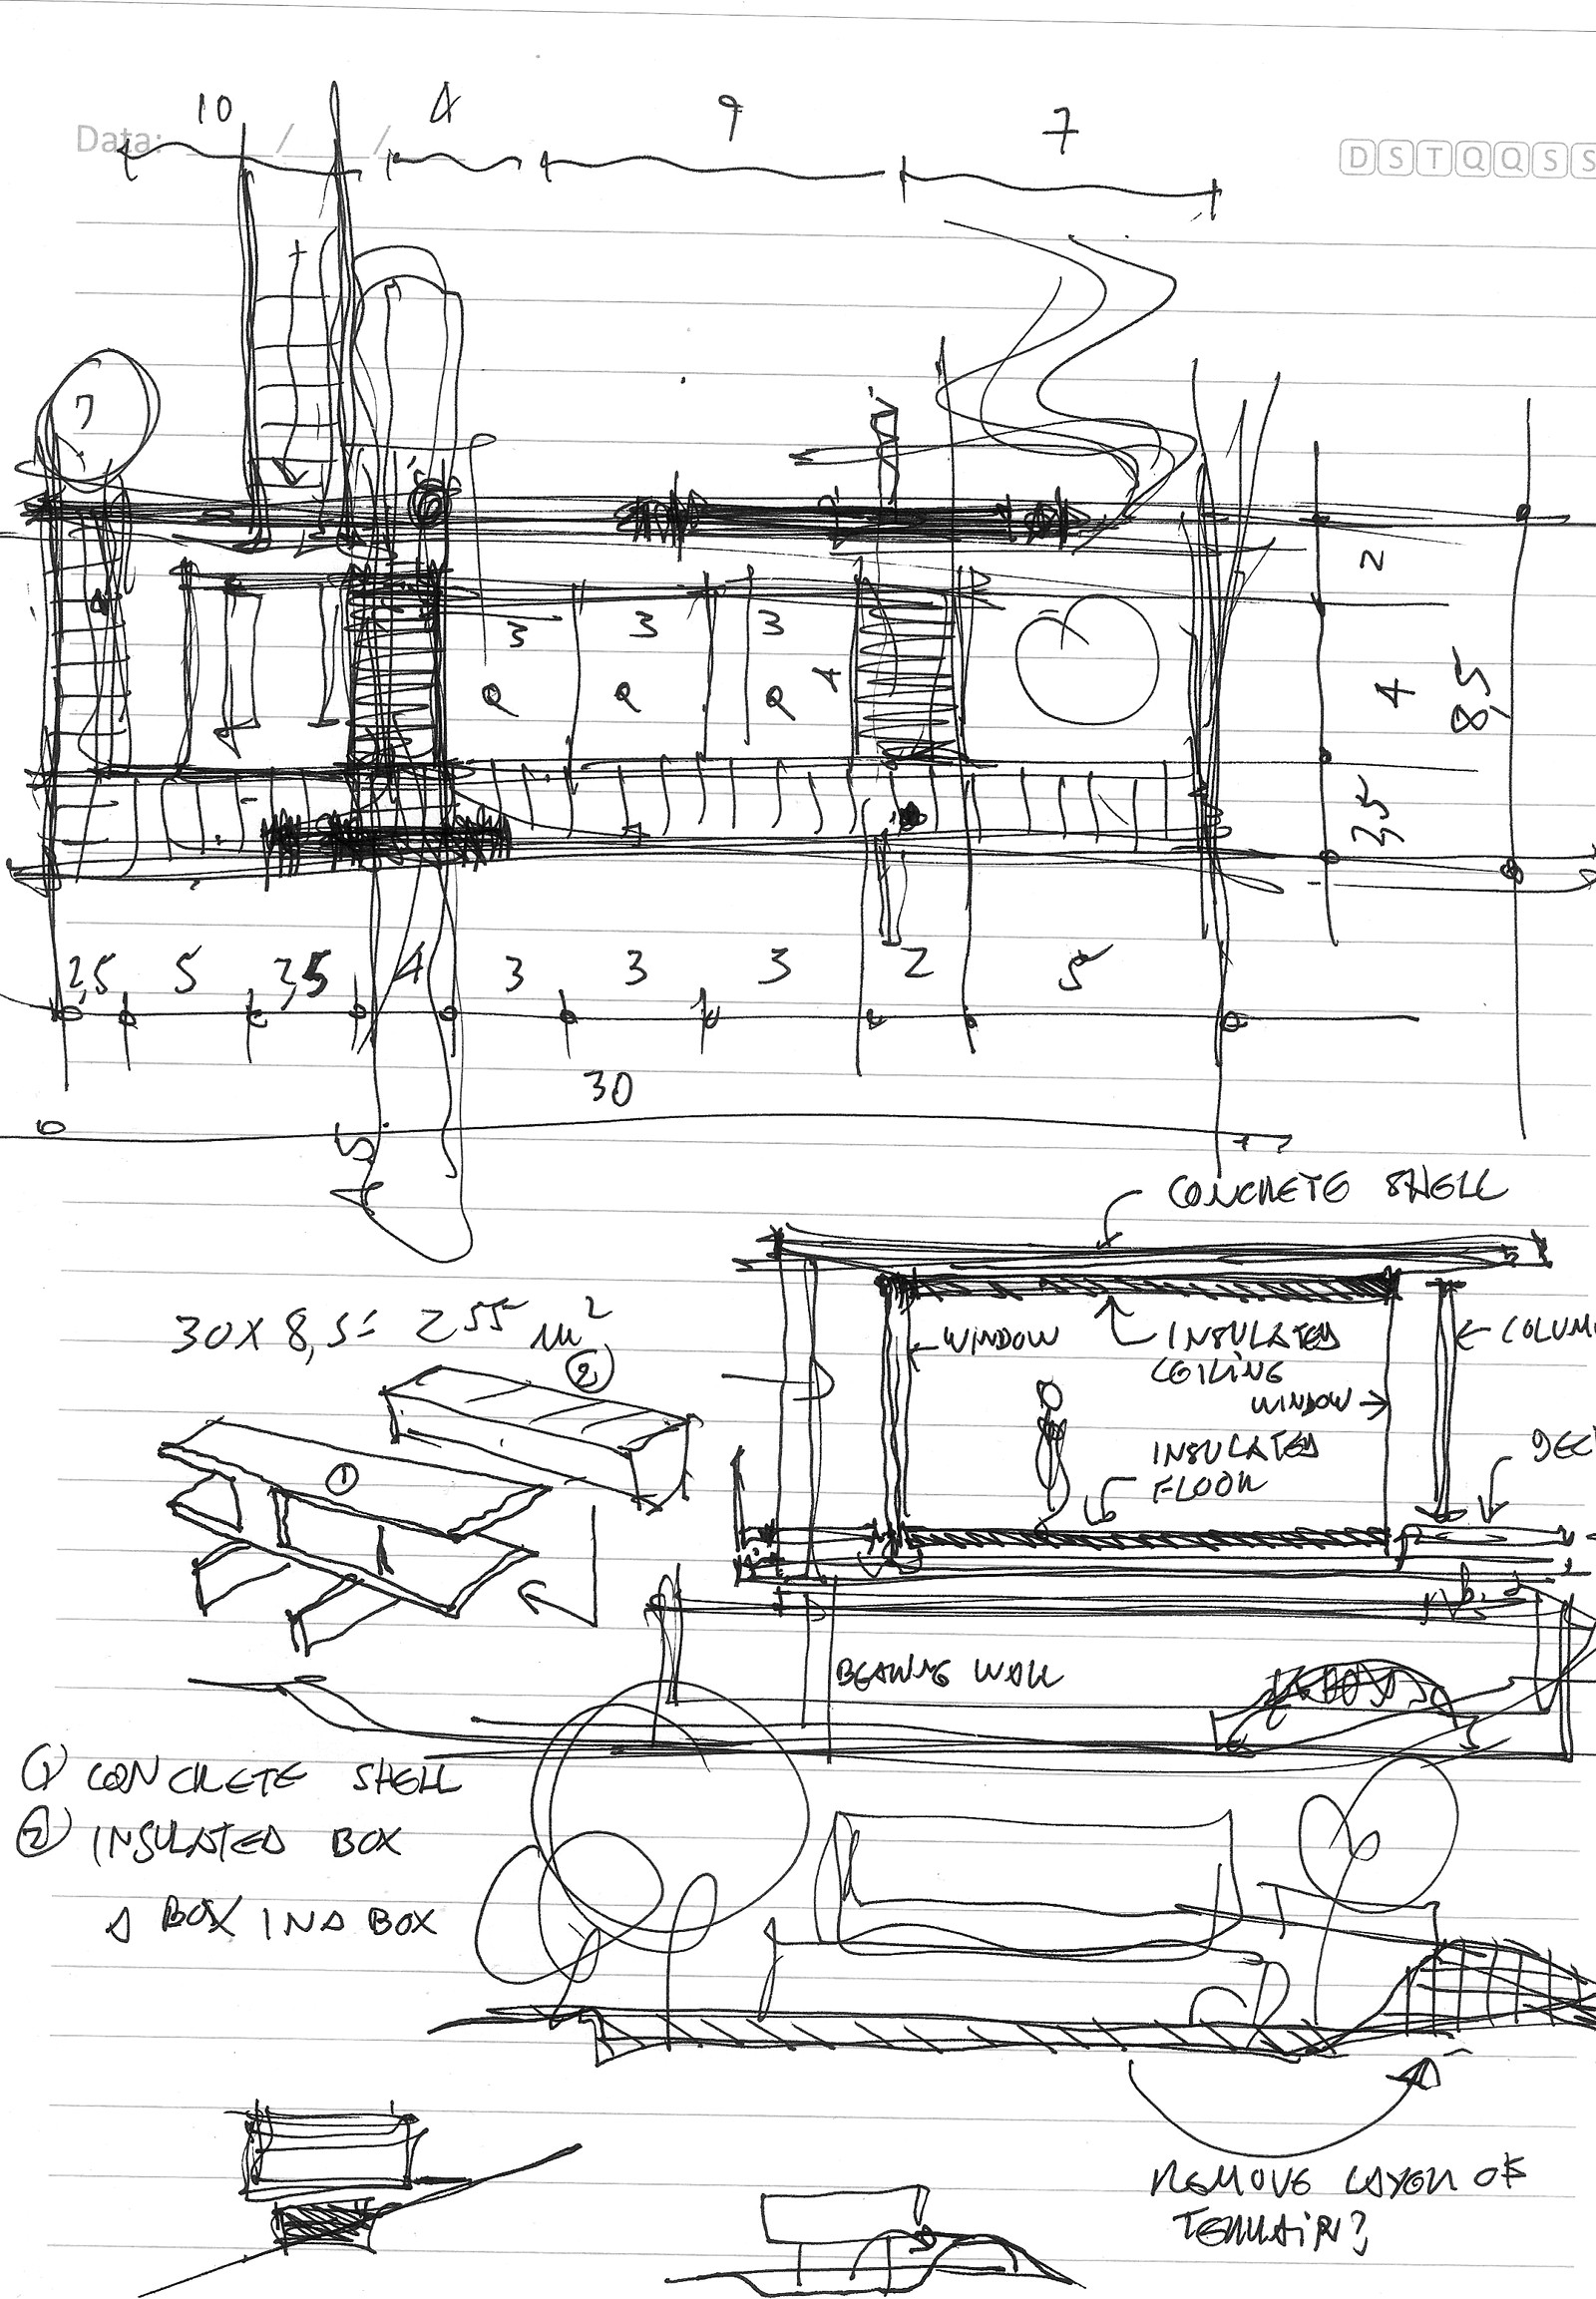 10 4 9 7
Data: ___/___/___
D S T Q Q S S
7
2
3 3 3
4
Q Q Q
4
8,5
2,5
2,5 5 2,5 4 3 3 3 2 5
30
CONCRETE SHELL
30 X 8,5 = 255 m²
②
WINDOW
INSULATED
CEILING
WINDOW
①
INSULATED
FLOOR
BEARING WALL
① CONCRETE SHELL
② INSULATED BOX
A BOX IN A BOX
REMOVE LAYER OF
TERRAIN?